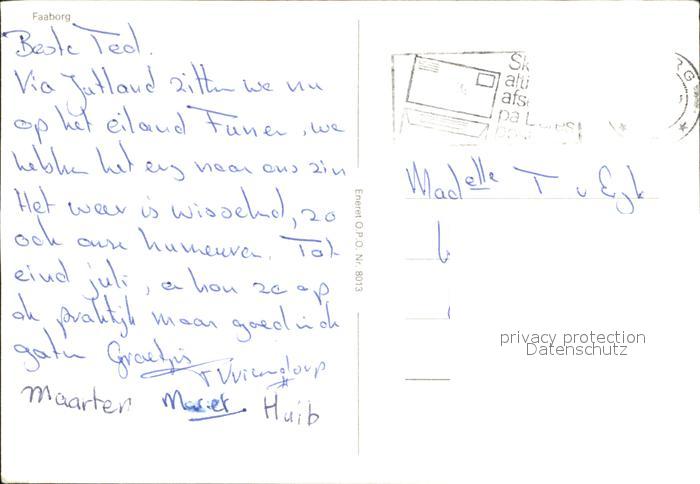 Faaborg
Beste Ted.
Via Jutland zitten we nu
op het eiland Funen, we
hebben het erg naar ons zin
Het weer is wisselend, zo
ook onze humeuren. Tot
eind juli, en hou ze op
de praktijk maar goed in de
gaten Groetjes
Maarten Huib
Eneret O.P.O. Nr. 8013
Sk
alti
afs
pa
Madelle T v Eyk
privacy protection
Datenschutz